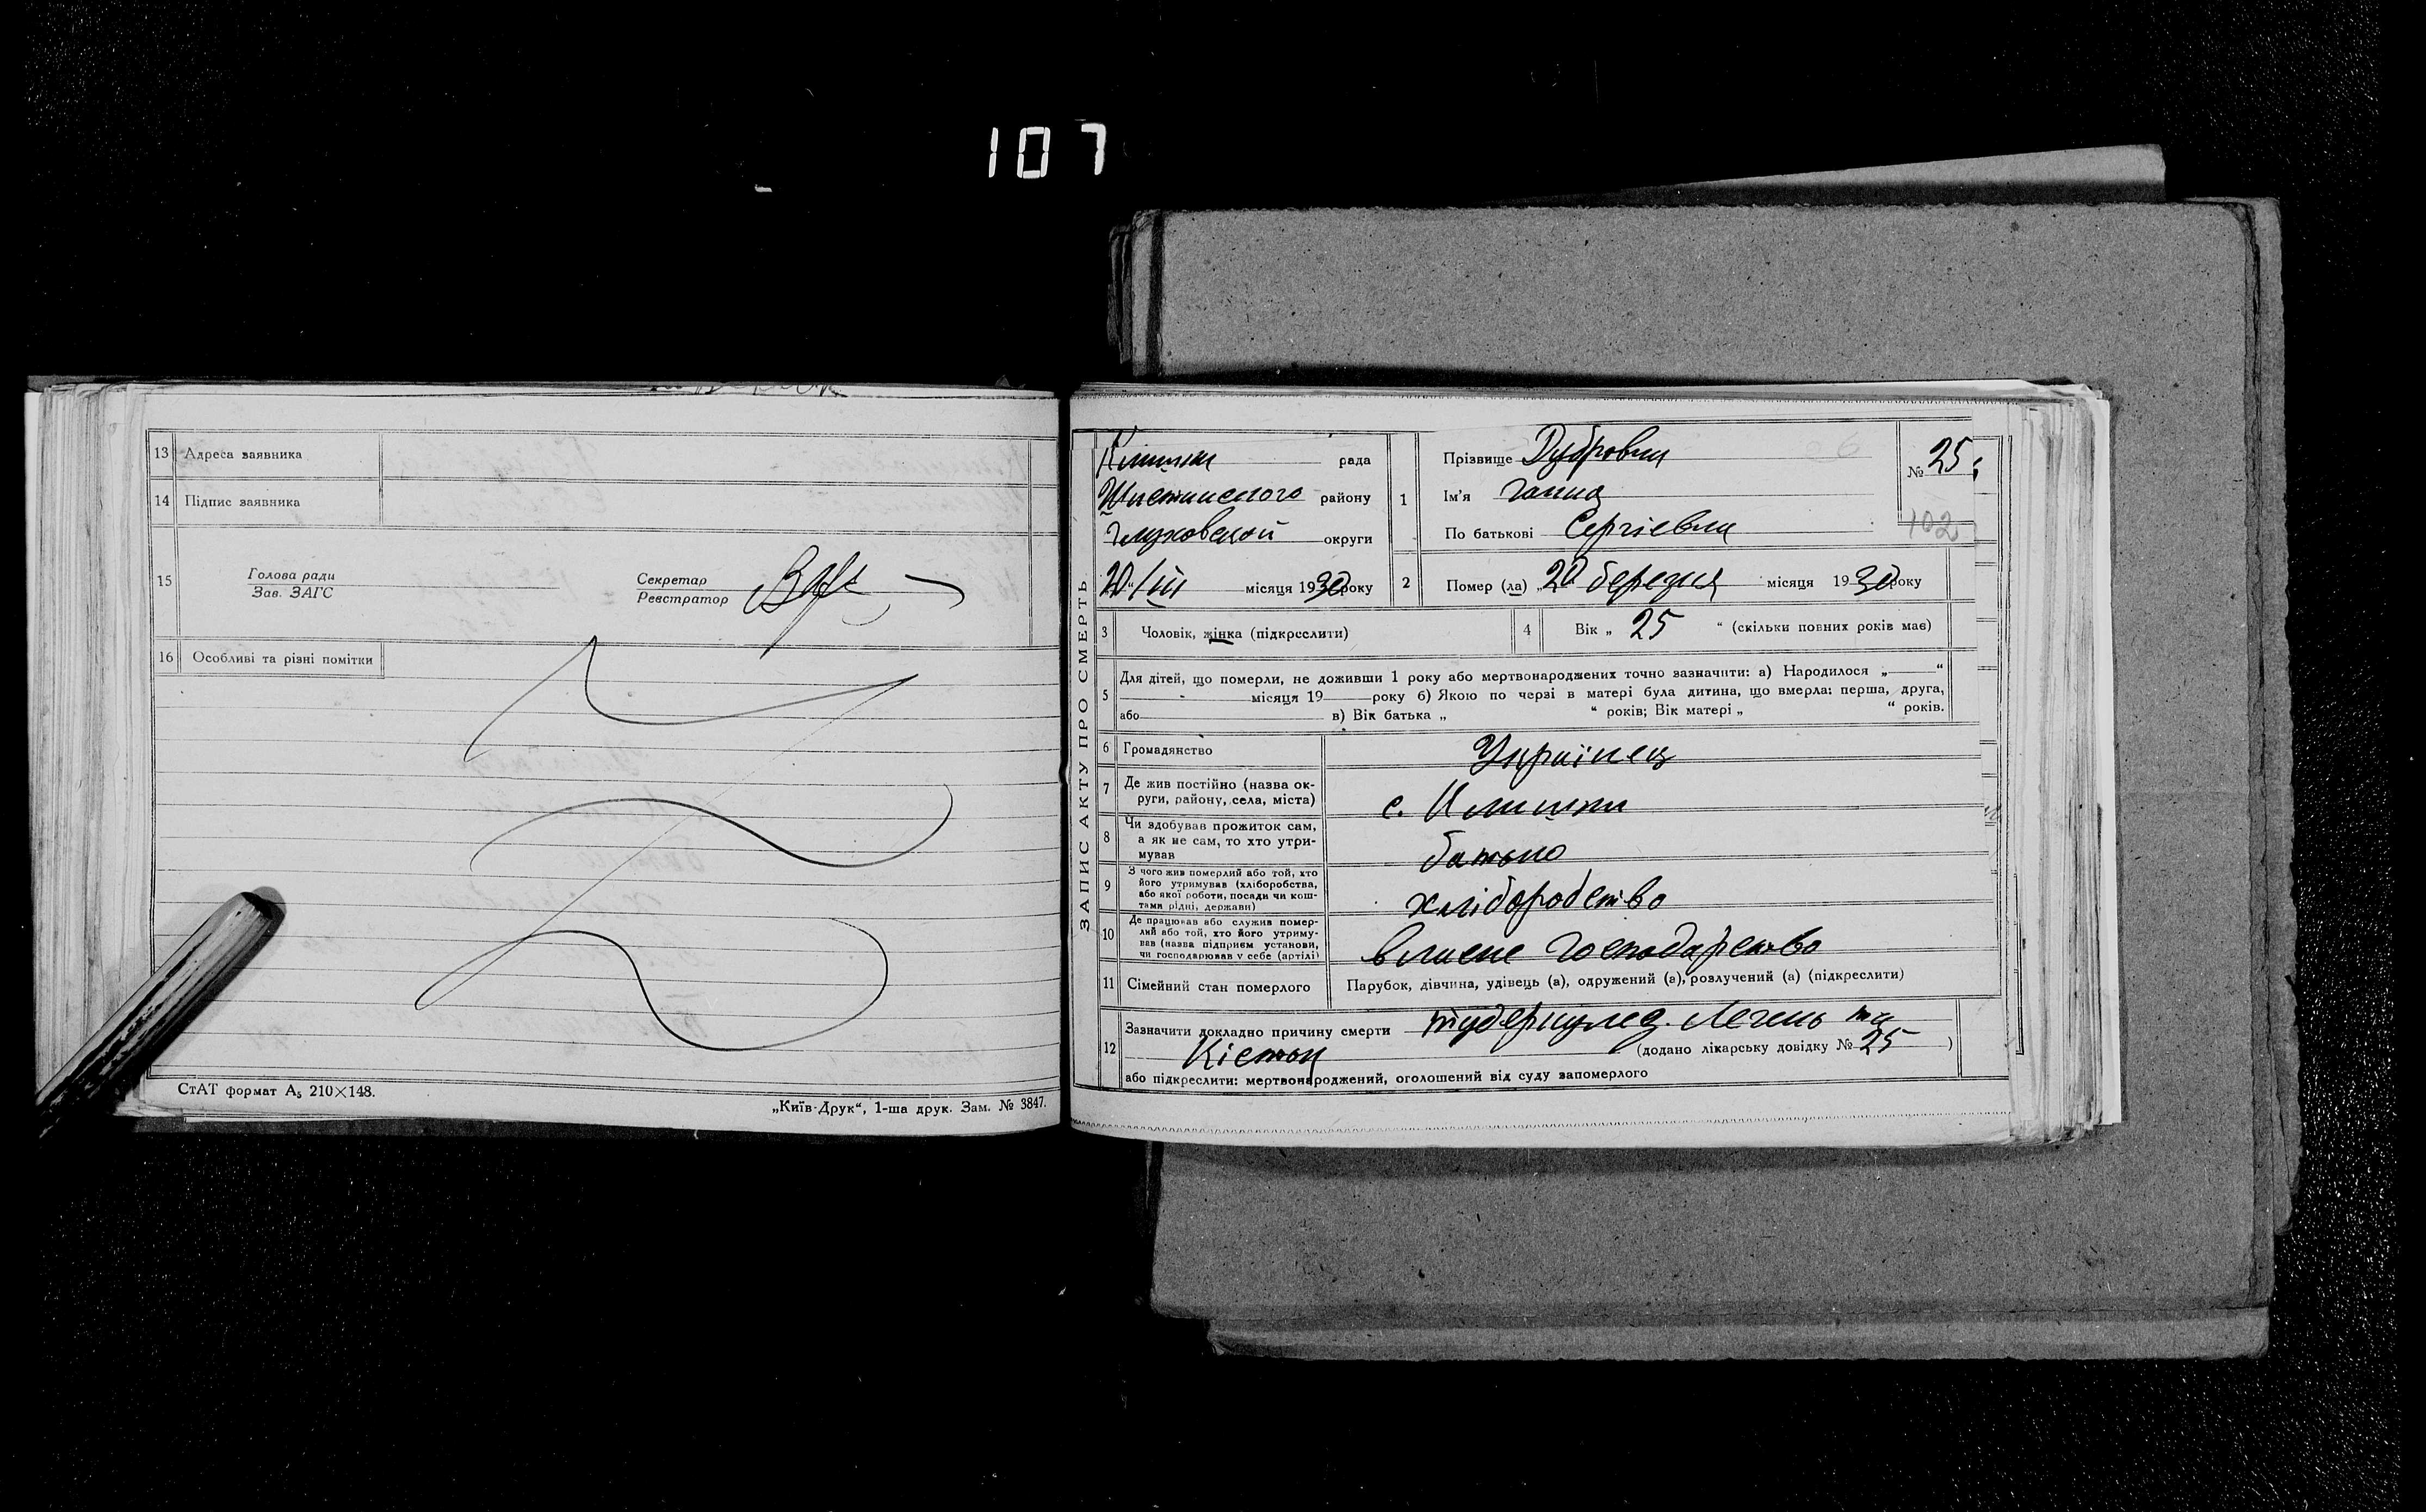 107
13 Адреса заявника
14 Підпис заявника
15 Голова ради
Зав. ЗАГС
Секретар
Реєстратор
16 Особливі та різні помітки
СтАТ формат А₅ 210×148.
„Київ-Друк“, 1-ша друк. Зам. № 3847.
ЗАПИС АКТУ ПРО СМЕРТЬ
Клишки рада
району
Глуховской округи
20/III місяця 1930 року
1 Прізвище
Ім'я Ганна
По батькові Сергієвна
№ 25
102
2 Помер (ла) „20 березня місяця 1930 року
3 Чоловік, жінка (підкреслити)
4 Вік „ 25 “ (скільки повних років має)
5 Для дітей, що померли, не доживши 1 року або мертвонароджених точно зазначити: а) Народилося „ “
місяця 19 року б) Якою по черзі в матері була дитина, що вмерла: перша, друга,
або в) Вік батька „ “ років; Вік матері „ “ років.
6 Громадянство Українец
7 Де жив постійно (назва ок-
руги, району, села, міста) с. Клишки
8 Чи здобував прожиток сам,
а як не сам, то хто утри-
мував батько
9 З чого жив померлий або той, хто
його утримував (хліборобства,
або якої роботи, посади чи кош-
тами рідні, держави) хліборобство
10 Де працював або служив помер-
лий або той, хто його утриму-
вав (назва підприєм установи,
чи господарював у себе (артілі) власне господарство
11 Сімейний стан померлого Парубок, дівчина, удівець (а), одружений (а), розлучений (а) (підкреслити)
12 Зазначити докладно причину смерти туберкулед. Легень та
Кісток (додано лікарську довідку № 25 )
або підкреслити: мертвонароджений, оголошений від суду запомерлого